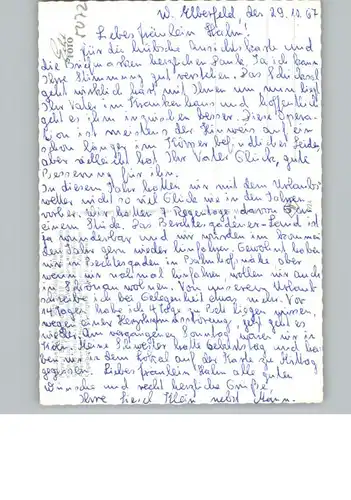 W. Elberfeld, den 29.10.67
Liebes Fräulein Hahn!
Für die hübsche Ansichtskarte und
die Briefmarken herzlichen Dank. Ja ich kann
Ihre Stimmung gut verstehen. Das Schicksal
geht wirklich hart mit Ihnen um nun liegt
Ihr Vater im Krankenhaus und hoffentlich
geht es ihm inzwischen besser. Diese Opera-
tion ist meistens der Hinweis auf ein
schon länger im Körper befindliches Leiden,
aber vielleicht hat Ihr Vater Glück, gute
Besserung für ihn.
In diesem Jahr hatten wir mit dem Urlaubs
wetter nicht so viel Glück wie in den Jahren
vorher. Wir hatten 7 Regentage davon
einem Stück. Das Berchtesgadener-Land ist
ja wunderbar und wir würden im kommen
den Jahr gern wieder hinfahren. Gewohnt haben
wir in Berchtesgaden in Bahnhofsnähe aber
wenn wir nochmal hinfahren wollen wir auch
in wohnen. Von unserem Urlaub
schreibe ich bei Gelegenheit etwas mehr. Vor
14 Tagen habe ich 4 Tage zu Bett liegen müssen,
wegen einer jetzt geht es
wieder. Am vergangenen Sonntag waren wir in
Köln. Meine Schwester hatte Geburtstag und ha
ben wir in dem Lokal auf der Karte zu Mittag
gegessen. Liebes Fräulein Hahn alle guten
Wünsche und recht herzliche Grüße
Ihre Liesel Klein nebst Mann.